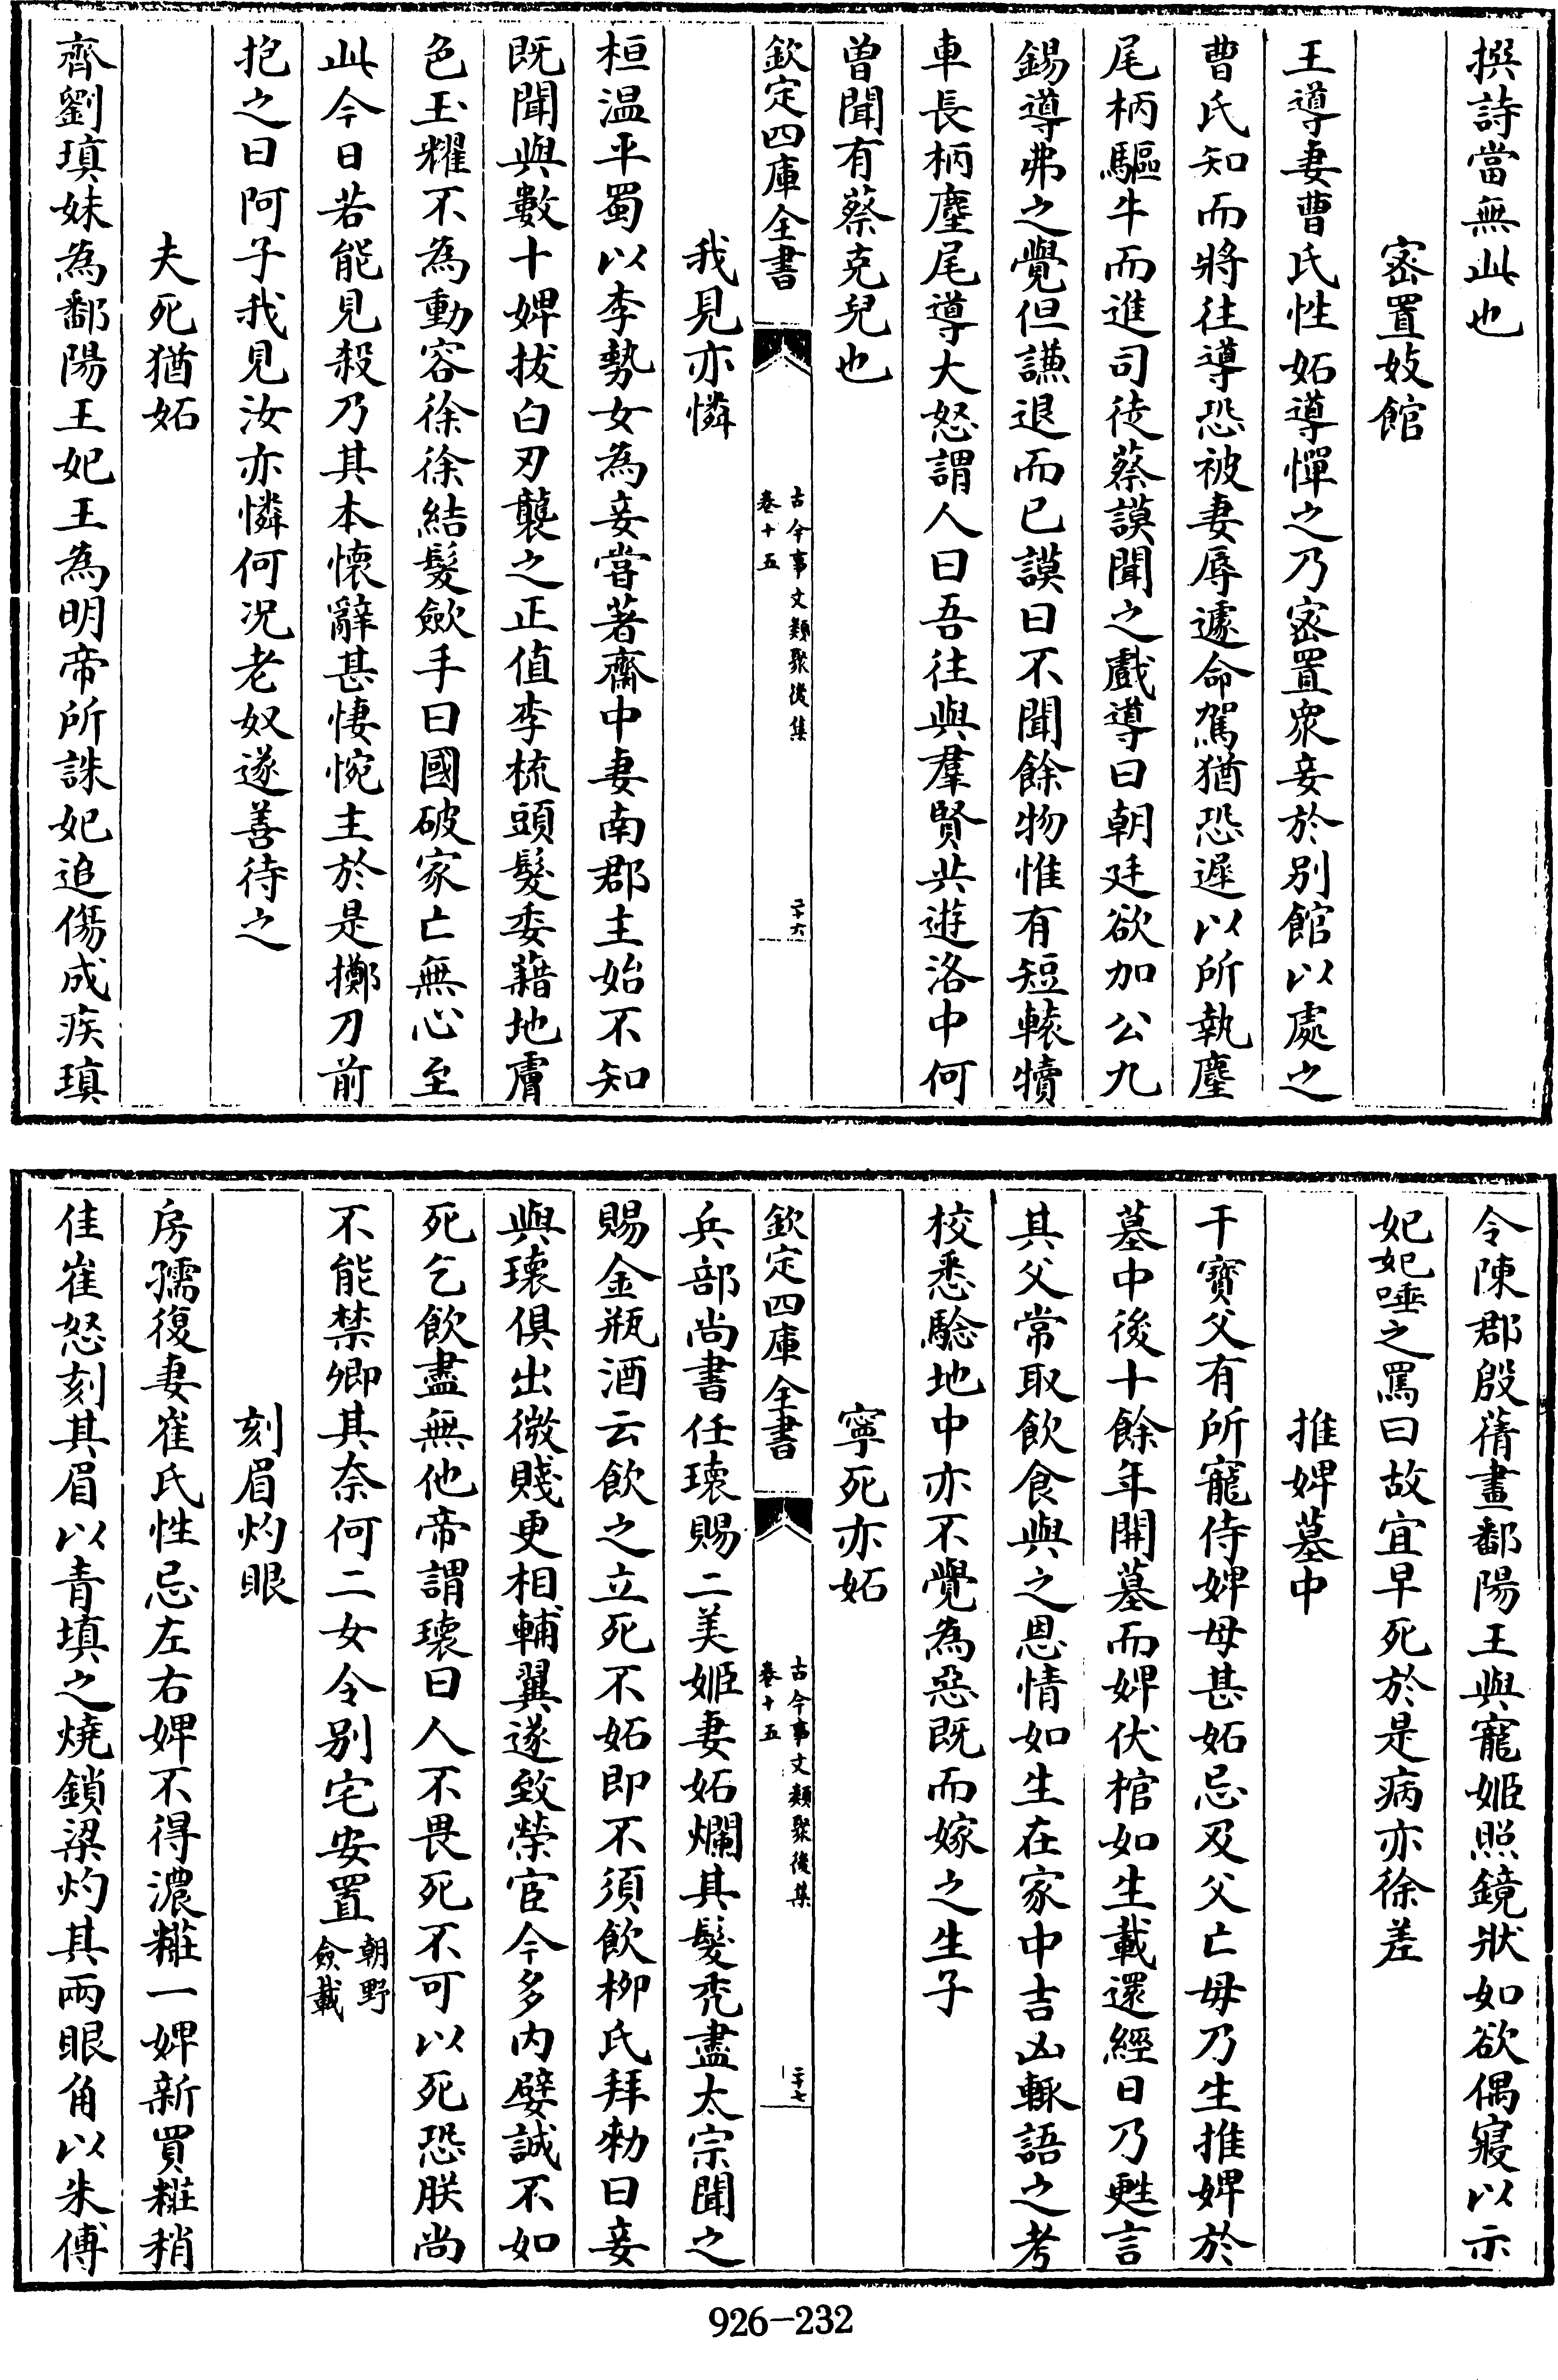 撰詩當無此也
密置妓館
王導妻曹氏性妬導憚之乃密置衆妾於别館以處之
曹氏知而將往導恐被妻辱遽命駕猶恐遲以所執麈
尾柄驅牛而進司徒蔡謨聞之戲導曰朝廷欲加公九
錫導弗之覺但謙退而已謨曰不聞餘物惟有短轅犢
車長柄麈尾導大怒謂人曰吾往與羣賢共遊洛中何
曾聞有蔡克兒也
欽定四庫全書
古今事文類聚後集
卷十五
二十六
我見亦憐
桓温平蜀以李勢女為妾當著齋中妻南郡主始不知
既聞與數十婢拔白刃襲之正值李梳頭髮委藉地膚
色玉耀不為動容徐徐結髮歛手曰國破家亡無心至
此今日若能見殺乃其本懷辭甚悽惋主於是擲刀前
抱之曰阿子我見汝亦憐何况老奴遂善待之
夫死猶妬
齊劉瑱妹為鄱陽王妃王為明帝所誅妃追傷成疾瑱
令陳郡殷蒨畫鄱陽王與寵姬照鏡狀如欲偶寢以示
妃妃唾之罵曰故宜早死於是病亦徐差
推婢墓中
干寶父有所寵侍婢母甚妬忌及父亡母乃生推婢於
墓中後十餘年開墓而婢伏棺如生載還經日乃甦言
其父常取飲食與之恩情如生在家中吉凶輙語之考
校悉驗地中亦不覺為惡既而嫁之生子
寧死亦妬
欽定四庫全書
古今事文類聚後集
卷十五
二十七
兵部尚書任瓌賜二美姬妻妬爛其髮秃盡太宗聞之
賜金瓶酒云飲之立死不妬即不須飲栁氏拜勑曰妾
與瓌俱出微賤更相輔翼遂致榮宦今多内嬖誠不如
死乞飲盡無他帝謂瓌曰人不畏死不可以死恐朕尚
不能禁卿其奈何二女令别宅安置朝野僉載
刻眉灼眼
房孺復妻崔氏性忌左右婢不得濃糚一婢新買糚稍
佳崔怒刻其眉以青填之燒鎖梁灼其兩眼角以朱傅
926-232